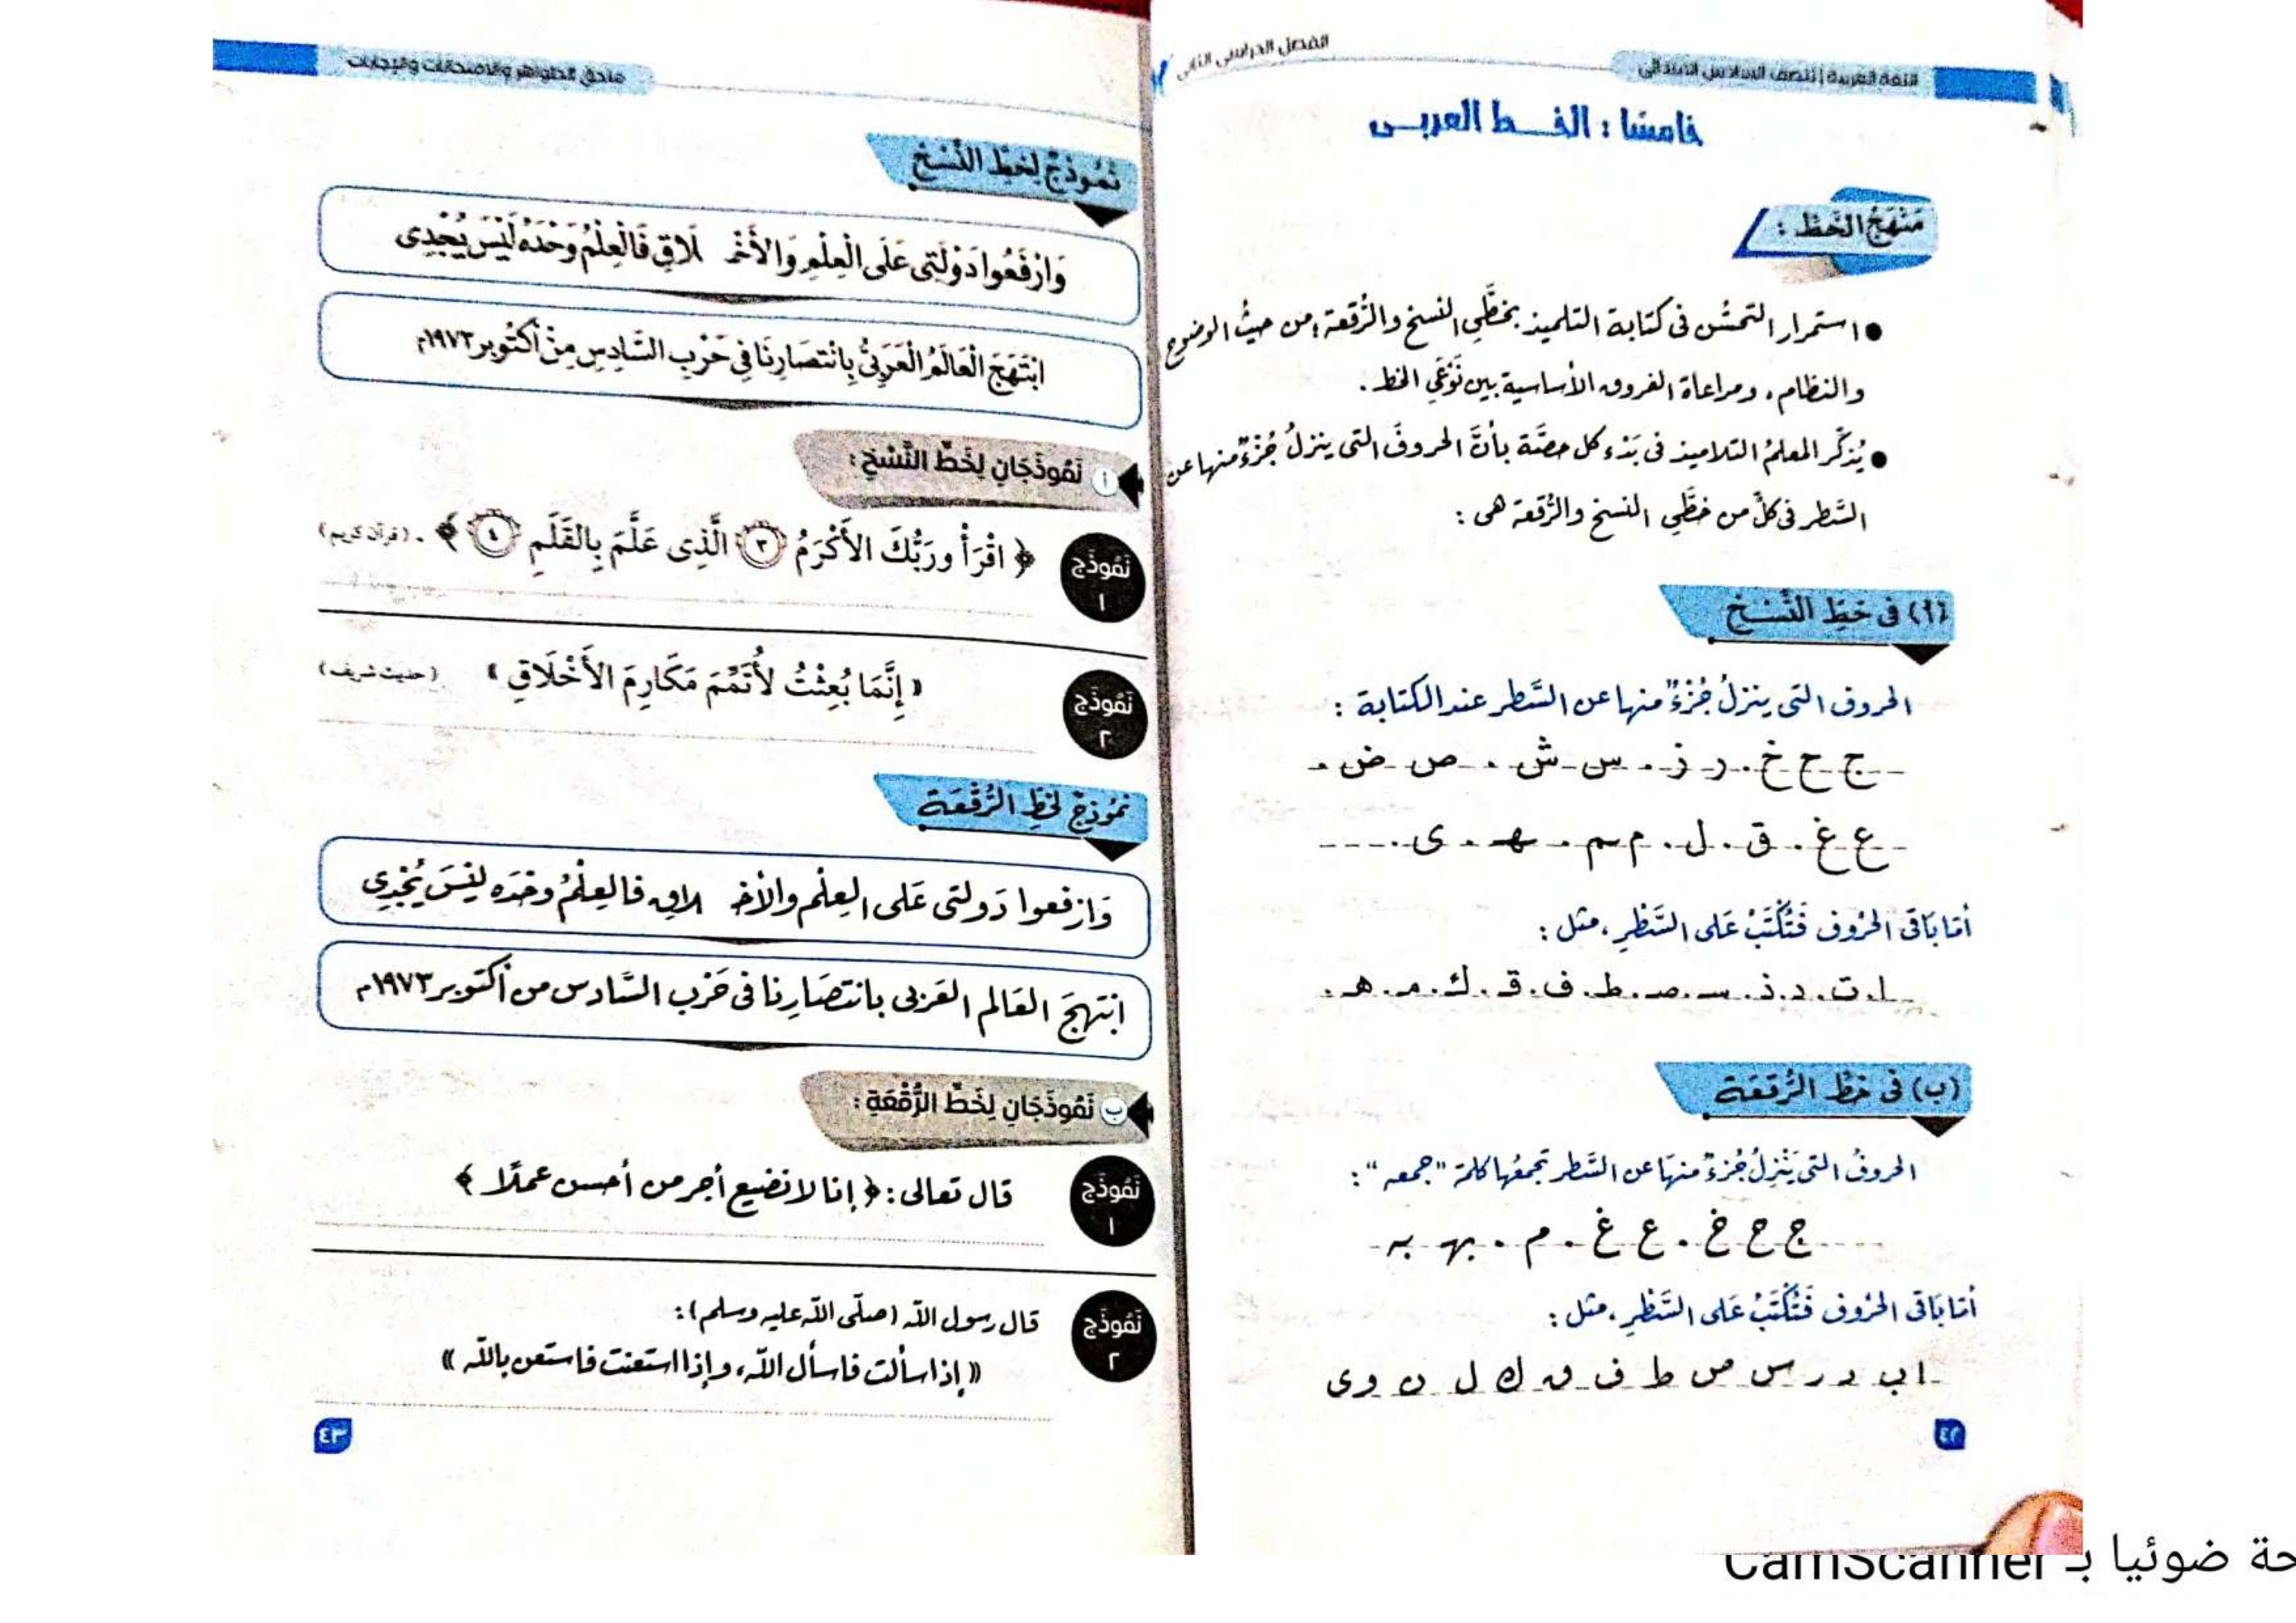 اللغة العربية | للصف السادس الابتدائى
الفصل الدراسى الثانى
خامسًا : الخـــط العربــى
مَنْهَجُ الخَطِّ :
● استمرار التحسُّن فى كتابة التلميذ بخطَّىِ النسخ والرُّقعة؛ من حيثُ الوضوح
والنظام، ومراعاة الفروق الأساسية بين نَوْعَىِ الخط .
● يُذكِّر المعلمُ التلاميذ فى بَدْء كل حصَّة بأنَّ الحروفَ التى ينزلُ جُزْءٌ منها عن
السَّطر فى كلٍّ من خطَّىِ النسخ والرُّقعة هى :
(أ) فى خطِّ النَّسْخِ
الحروف التى ينزلُ جُزْءٌ منها عن السَّطر عند الكتابة :
ج ح خ . ر ز . س ش . ص ض .
ع غ . ق . ل . م ـم . ـهـ . ى .
أمَّا بَاقى الحُرُوف فَتُكْتَبُ عَلى السَّطْرِ ، مثل :
ا . ت . د . ذ . سـ . صـ . ط . ف . قـ . ك . مـ . هـ .
(ب) فى خطِّ الرُّقعَة
الحروفُ التى يَنْزِلُ جُزءٌ منهَا عن السَّطر تجمعُها كلمة "جمعه" :
ج ح خ . ع غ . م . ـهـ ـه
أمَّا بَاقى الحُرُوف فَتُكْتَبُ عَلى السَّطْرِ ، مثل :
ا ب د ر س ص ط ف ق ك ل ن و ى
٤٢
ملحق الظواهر والامتحانات والإجابات
نَمُوذَجٌ لِخَطِّ النَّسْخِ
وَارْفَعُوا دَوْلَتِى عَلَى الْعِلْمِ وَالْأَخْـ ـلَاقِ فَالْعِلْمُ وَحْدَهُ لَيْسَ يُجْدِى
ابْتَهَجَ الْعَالَمُ الْعَرَبِىُّ بِانْتِصَارِنَا فِى حَرْبِ السَّادِسِ مِنْ أُكْتُوبر ١٩٧٣م
أ نَمُوذَجَانِ لِخَطِّ النَّسْخِ :
نَمُوذَج ١ ﴿ اقْرَأْ ورَبُّكَ الأَكْرَمُ ٣ الَّذِى عَلَّمَ بِالقَلَمِ ٤ ﴾ . (قرآن كريم)
نَمُوذَج ٢ « إِنَّمَا بُعِثْتُ لأُتَمِّمَ مَكَارِمَ الأَخْلَاقِ » (حديث شريف)
نَمُوذجٌ لِخَطِّ الرُّقْعَة
وَارْفعوا دَولتى عَلى العِلْم والأخـ ـلاق فالعِلْمُ وحْدَه ليْسَ يُجْدِى
ابْتهجَ العَالم العَربى بانتصَارِنا فى حَرْب السَّادس من أكتوبر ١٩٧٣م
ب نَمُوذَجَانِ لِخَطِّ الرُّقْعَةِ :
نَمُوذَج ١ قال تعالى : ﴿ إنا لا نضيع أجر من أحسن عملًا ﴾
نَمُوذَج ٢ قال رسول الله (صلّى الله عليه وسلم) :
« إذا سألت فاسأل الله، وإذا استعنت فاستعن بالله »
٤٣
حة ضوئيا بـ CamScanner